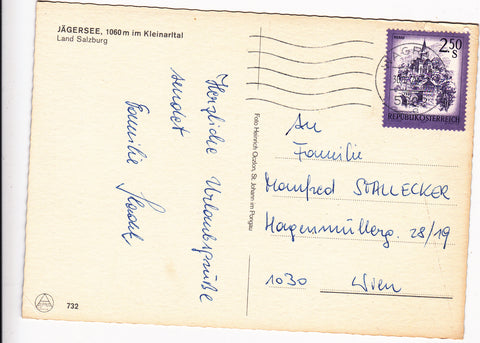 JÄGERSEE, 1060 m im Kleinarltal
Land Salzburg
Herzliche Urlaubsgrüße
sendet
Familie
Foto Heinrich Oczlon, St. Johann im Pongau
2.50
S
REPUBLIK ÖSTERREICH
An
Familie
Manfred STALLECKER
Hagenmüllerg. 28/19
1030 Wien
732